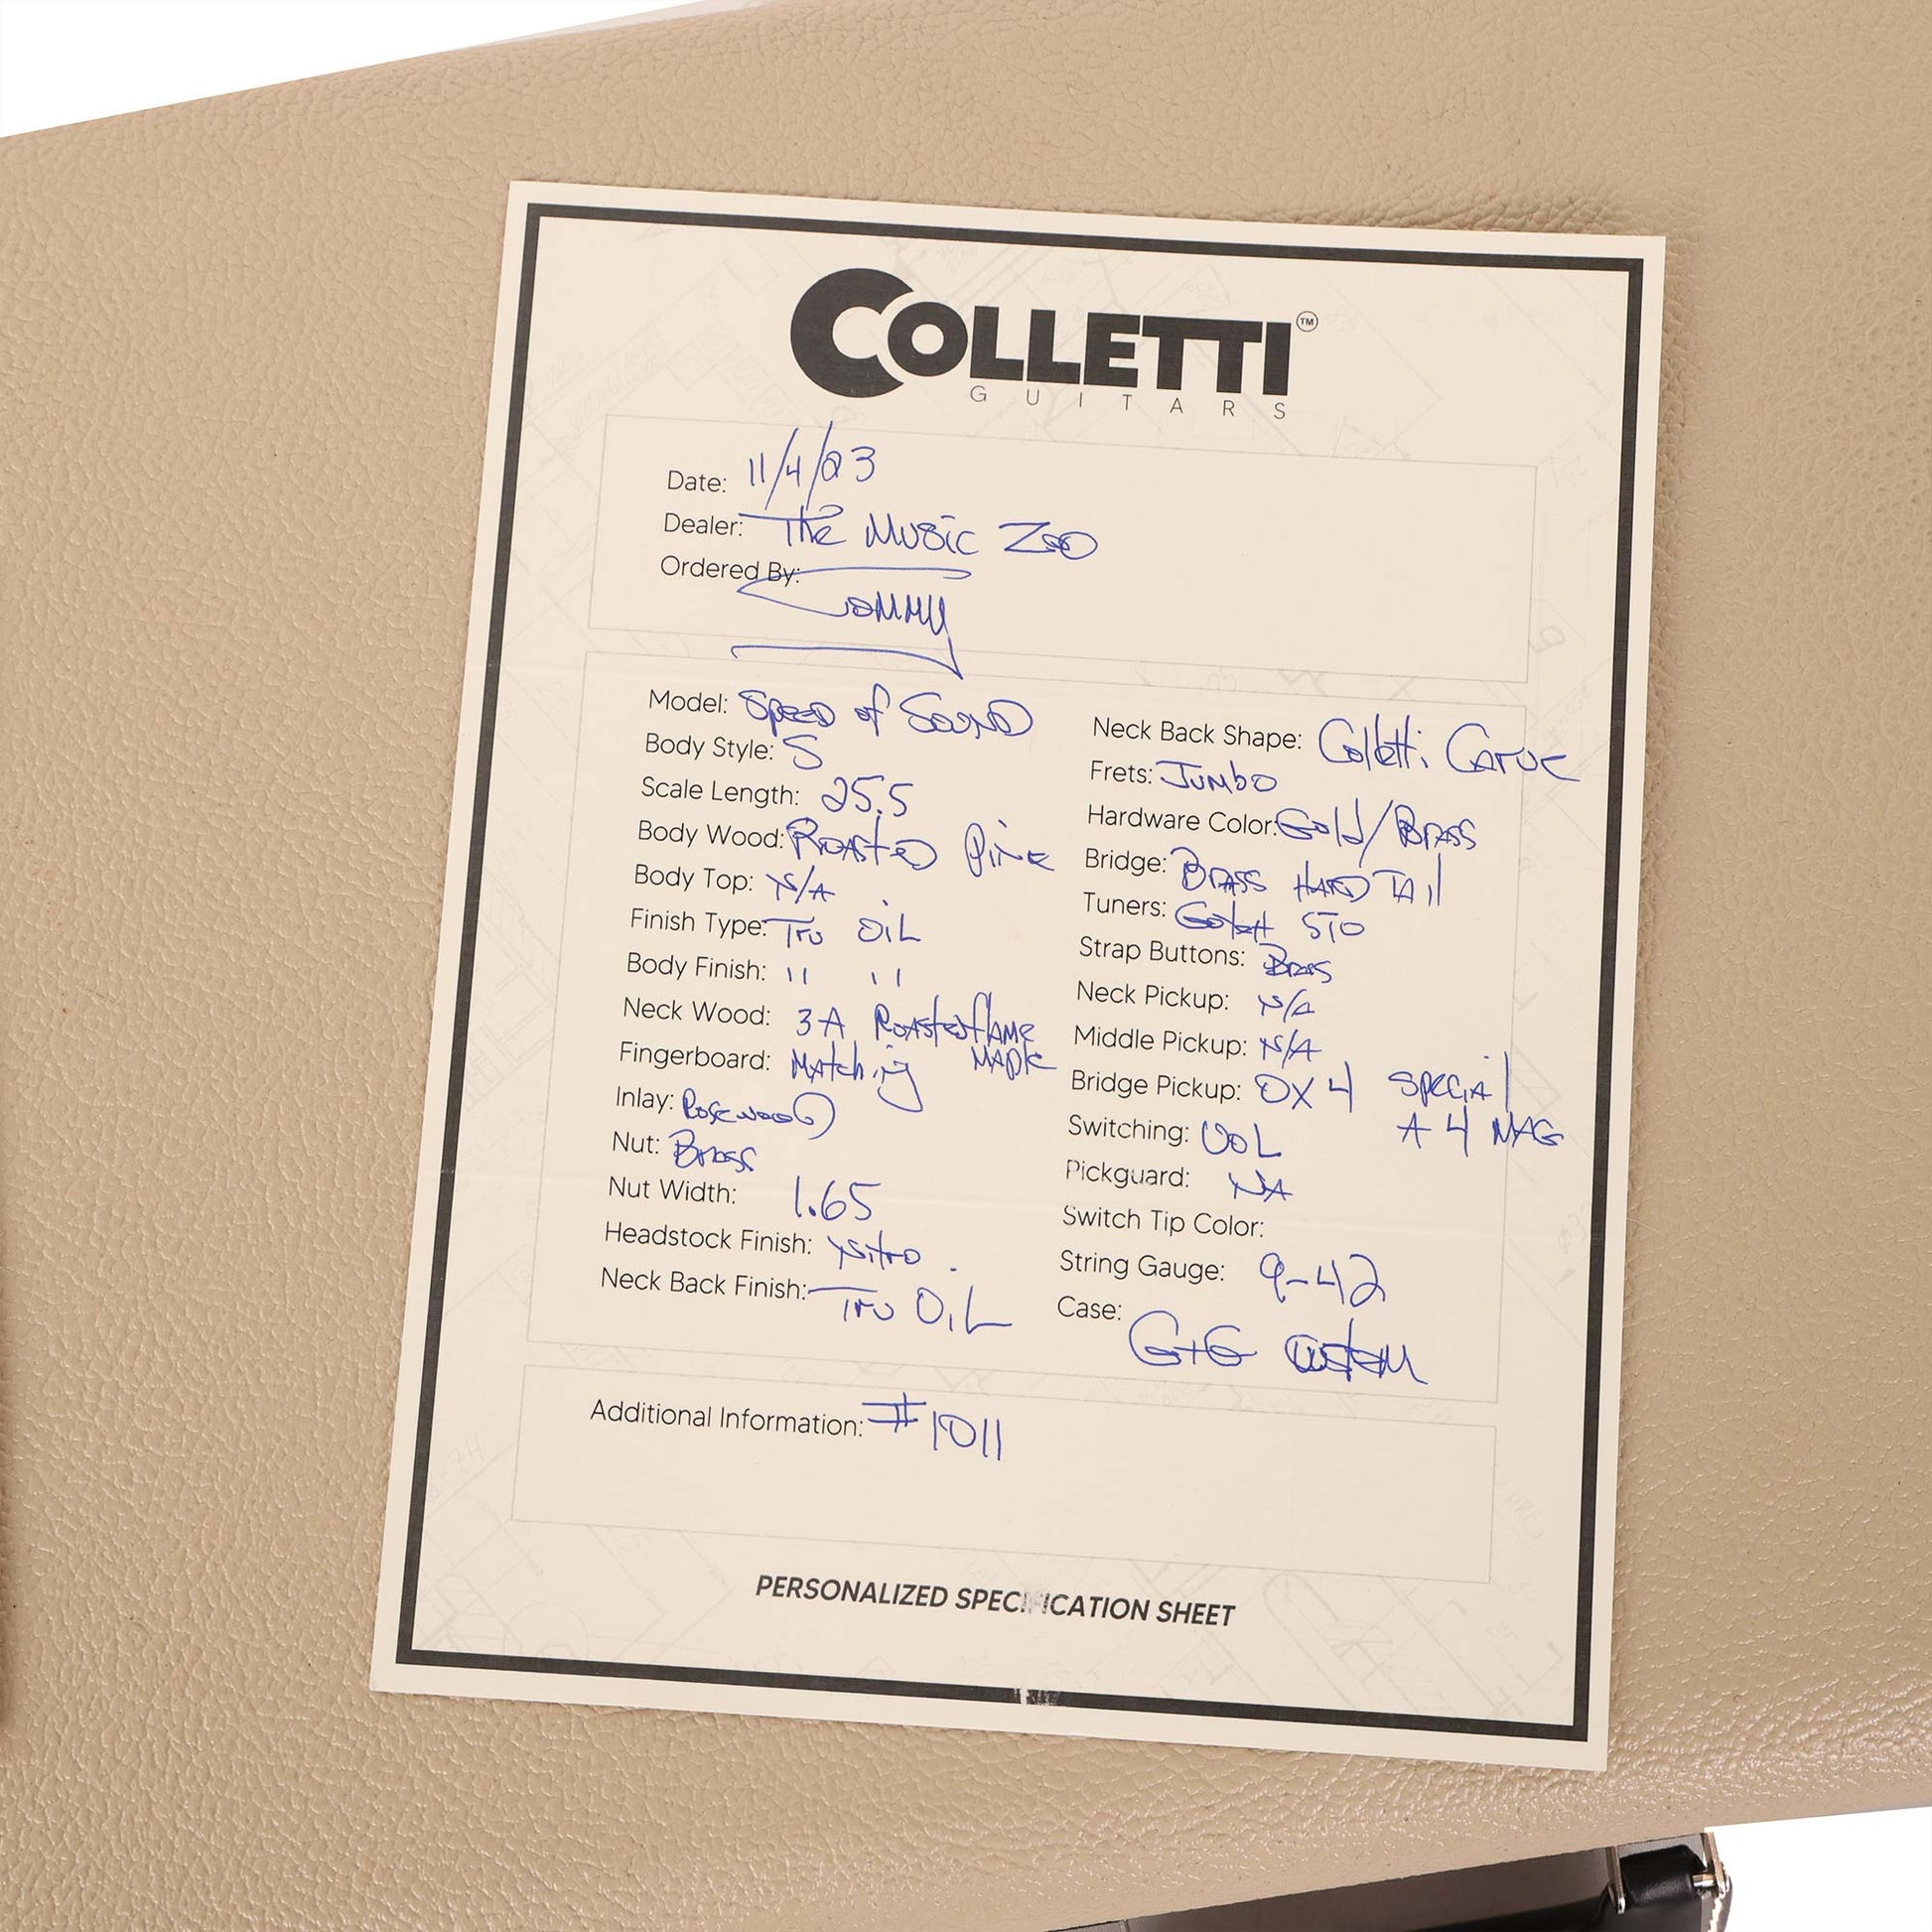 COLLETTI™
GUITARS
Date: 11/4/23
Dealer: The Music Zoo
Ordered By: Tommy
Model: Speed of Sound
Body Style: S
Scale Length: 25.5
Body Wood: Roasted Pine
Body Top: N/A
Finish Type: Tru Oil
Body Finish: " "
Neck Wood: 3A Roasted flame Maple
Fingerboard: Matching
Inlay: Rosewood
Nut: Brass
Nut Width: 1.65
Headstock Finish: Nitro
Neck Back Finish: Tru Oil
Neck Back Shape: Colletti Carve
Frets: Jumbo
Hardware Color: Gold/Brass
Bridge: Brass HardTail
Tuners: Gotoh 510
Strap Buttons: Brass
Neck Pickup: N/A
Middle Pickup: N/A
Bridge Pickup: OX4 Special
A4 MAG
Switching: VOL
Pickguard: NA
Switch Tip Color:
String Gauge: 9-42
Case: G+G Custom
Additional Information: #1011
PERSONALIZED SPECIFICATION SHEET